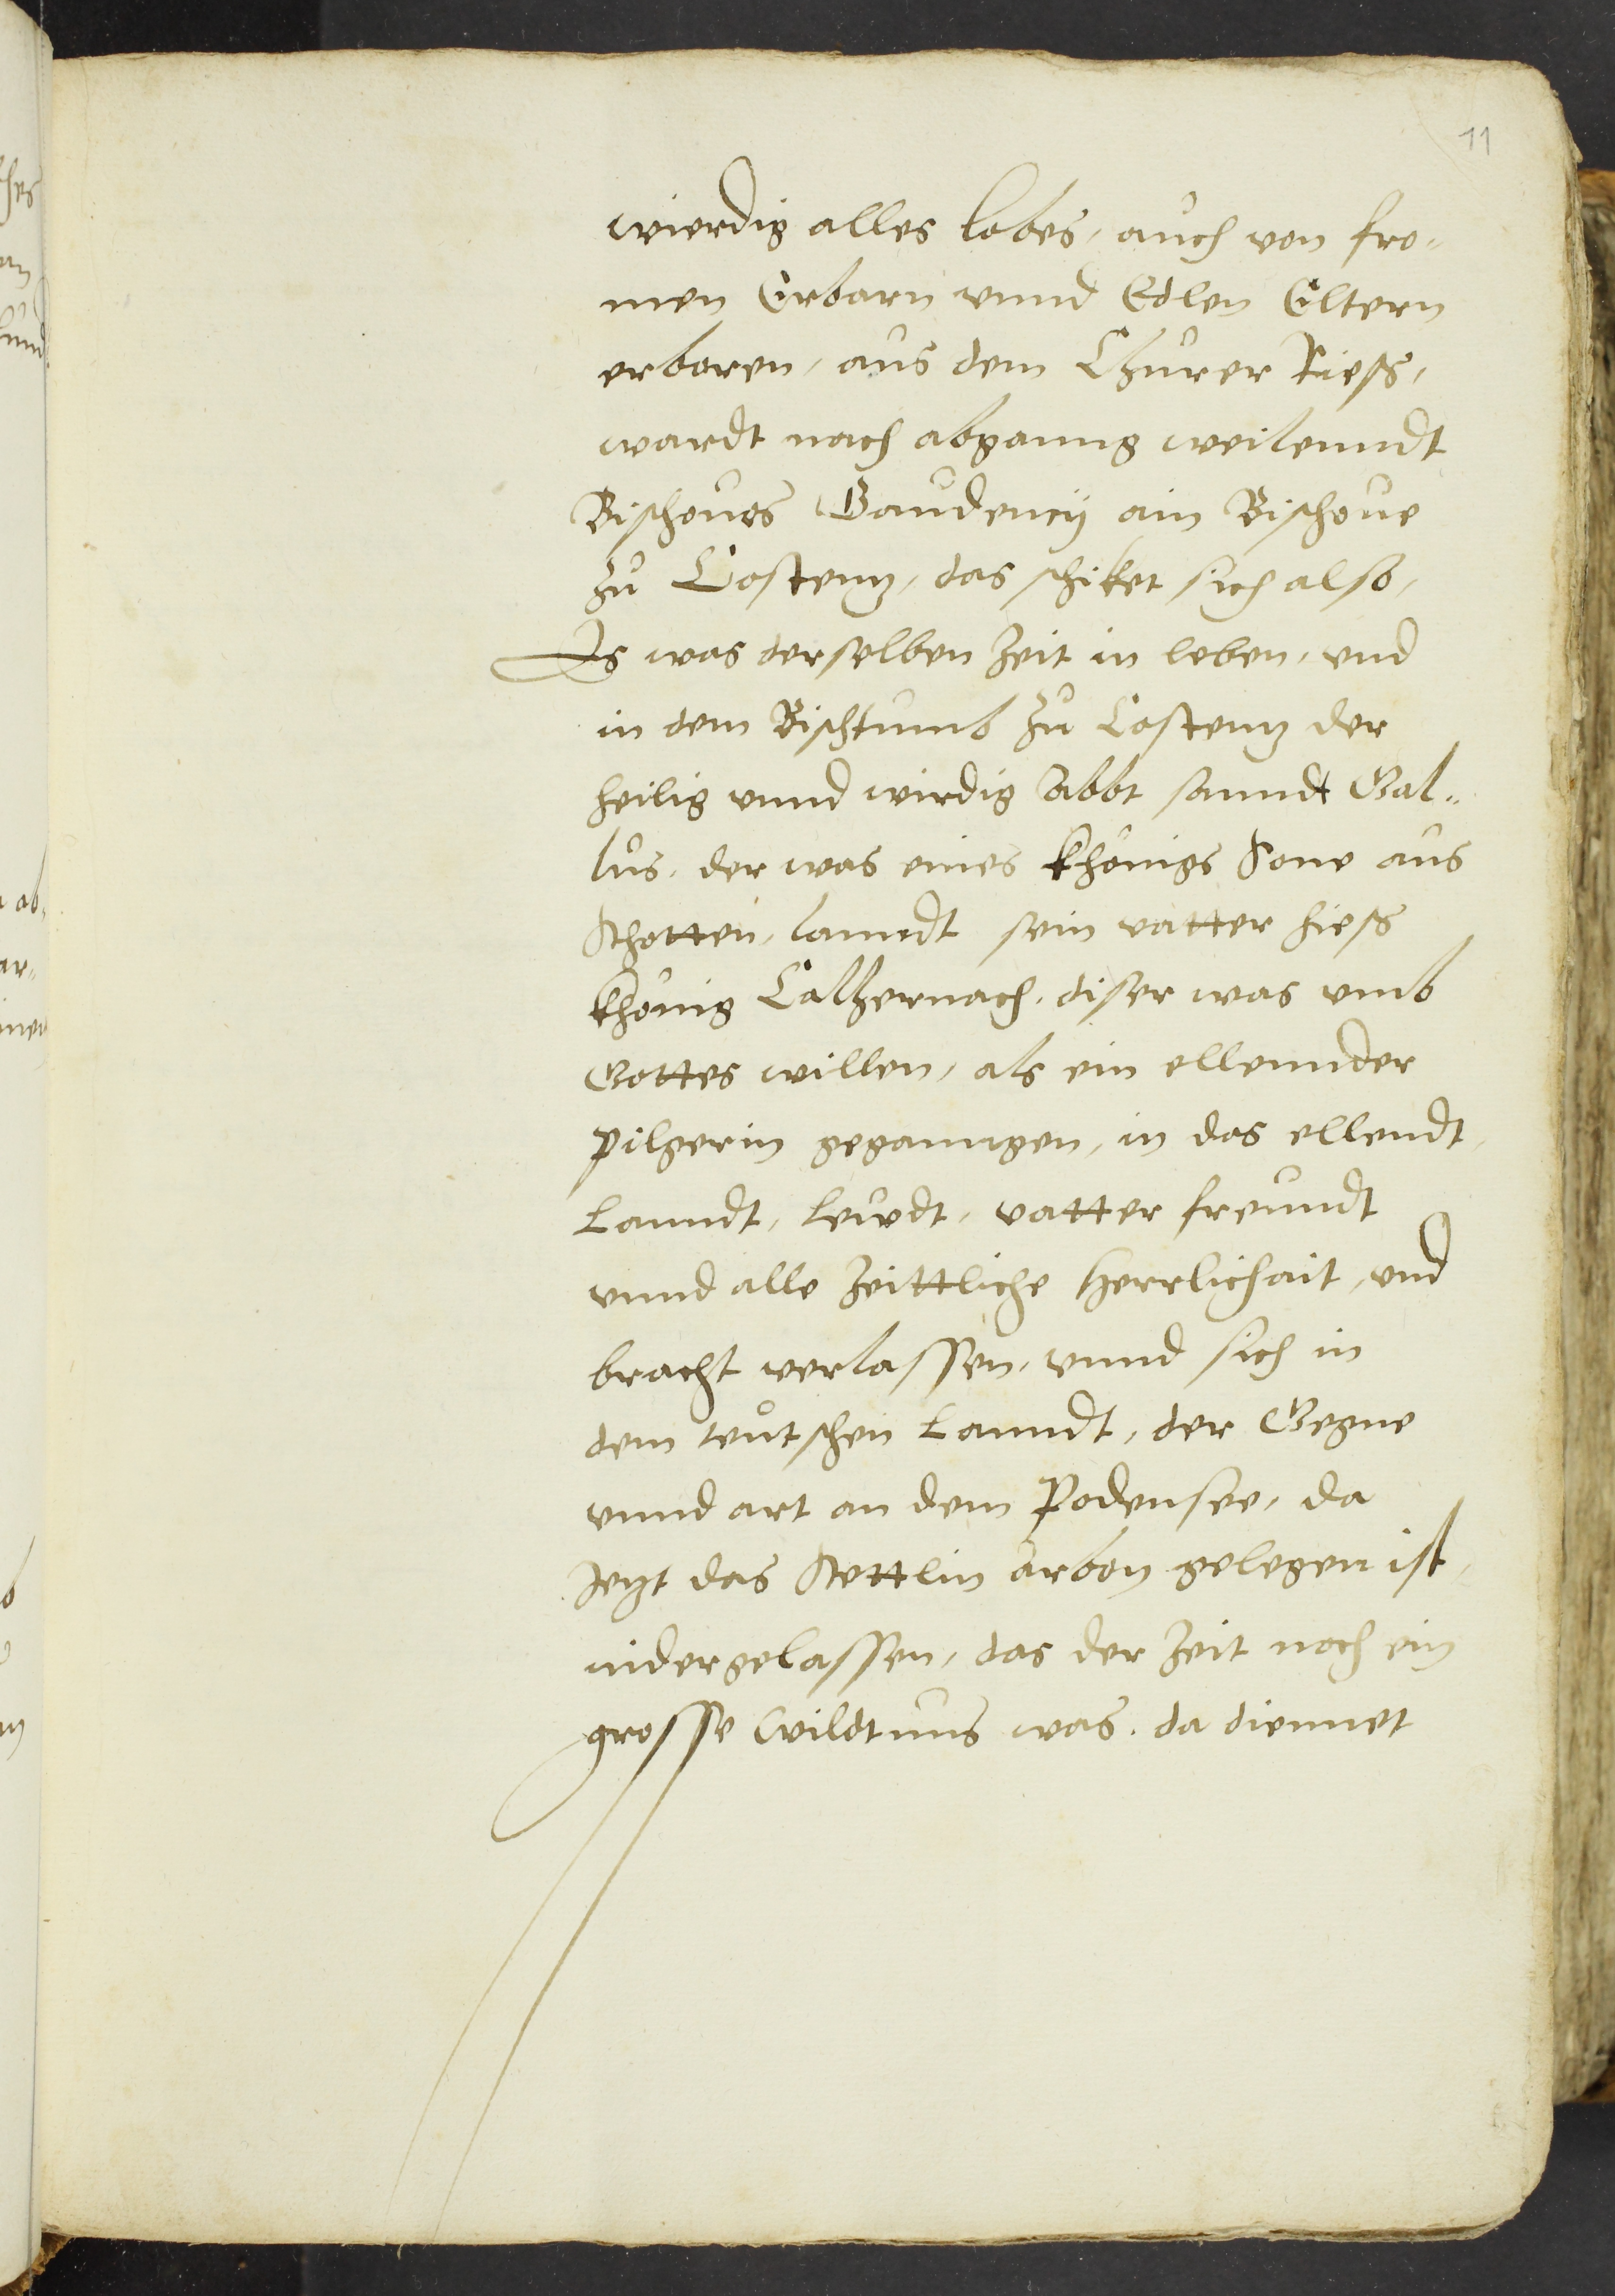 11
wierdig alles lobes, auch von fro-
men Erbarn vnnd Edlen Eltern
erboren, aus dem Churer Riess,
wardt nach abganng weilenndt
Bischoues Gaudencÿ ain Bischoue
zu Costenz, das schiket sich also,
Es was derselben Zeit in leben, vnd
in dem Bischtumb zu Costenz der
heilig vnnd wirdig Abbt sanndt Gal-
lus, der was eines khönigs Sone aus
Schotten, lanndt sein vatter hiess
khönig Calhernach, diser was vmb
Gottes willen, als ein ellennder
pilgerin geganngen, in das ellendt,
Lanndt, leudt, vatter freundt
vnnd alle Zeittliche Herrlichait, vnd
bracht verlassen, vnnd sich in
dem teutschen Lanndt, der Gegne
vnnd art an dem Podensee, da
Jezt das Stettlin arbon gelegen ist,
nidergelassen, das der Zeit noch ein
grosse Wildtnus was. da diennet